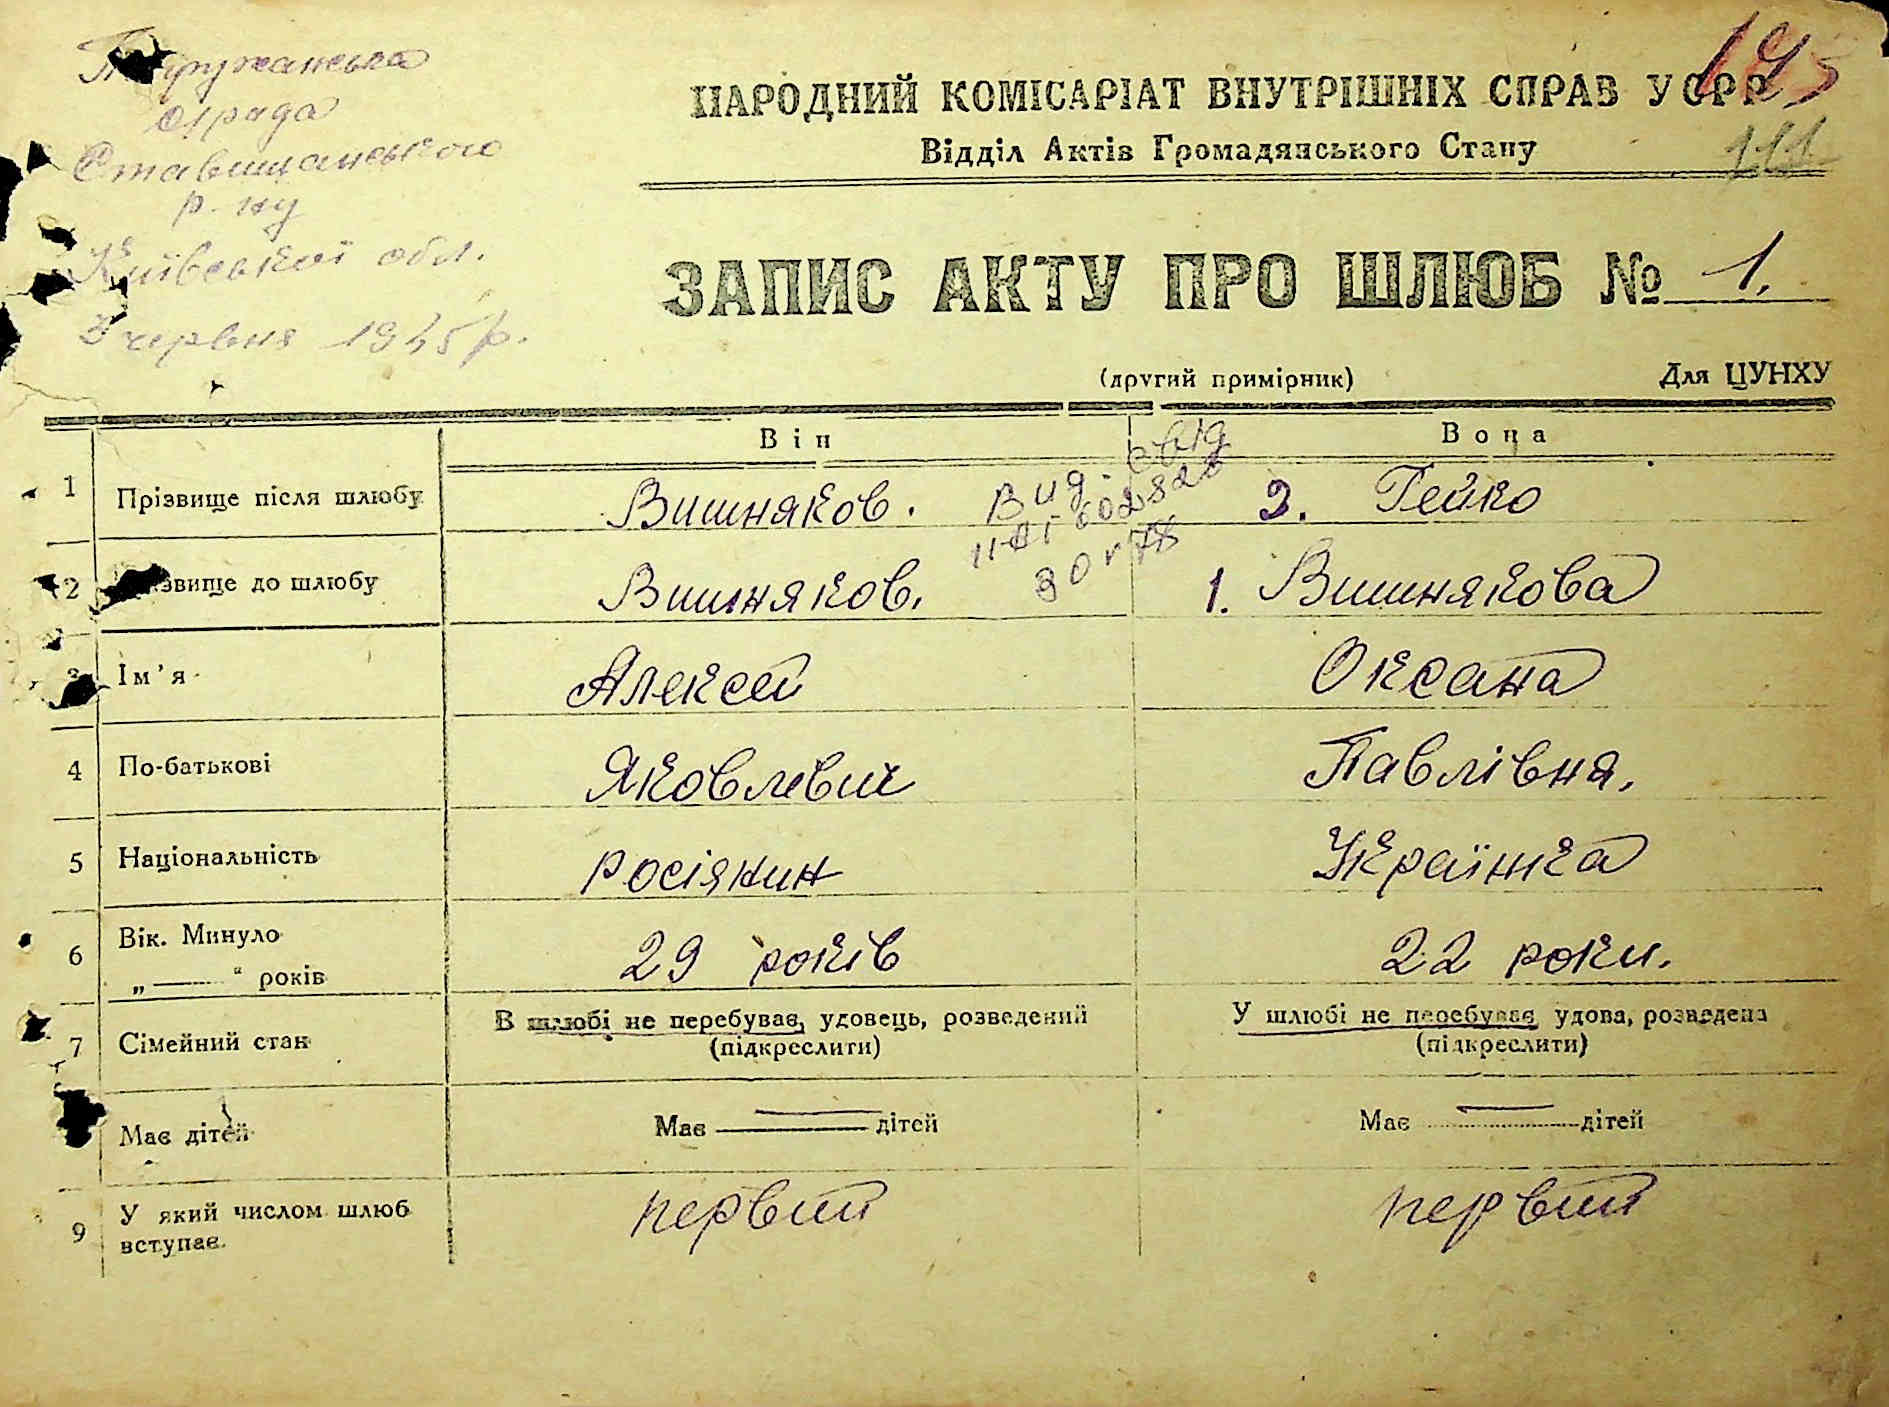 с/рада
Ставищанського
р-ну
Київської обл.
3 червня 1945 р.
НАРОДНИЙ КОМІСАРІАТ ВНУТРІШНІХ СПРАВ УСРР
Відділ Актів Громадянського Стану
111
ЗАПИС АКТУ ПРО ШЛЮБ № 1.
(другий примірник) Для ЦУНХУ
Він Вона
1 Прізвище після шлюбу Вишняков. 2. Гейко
Вид. свід
2 Прізвище до шлюбу Вишняков. 1. Вишнякова
3 Ім'я Алексей Оксана
4 По-батькові Яковлевич Павлівна.
5 Національність росіянин Українка
6 Вік. Минуло 29 років 22 роки.
„ — “ років
7 Сімейний стан В шлюбі не перебуває, удовець, розведений У шлюбі не перебуває удова, розведена
(підкреслити) (підкреслити)
Має дітей Має — дітей Має — дітей
9 У який числом шлюб вступає первий первий